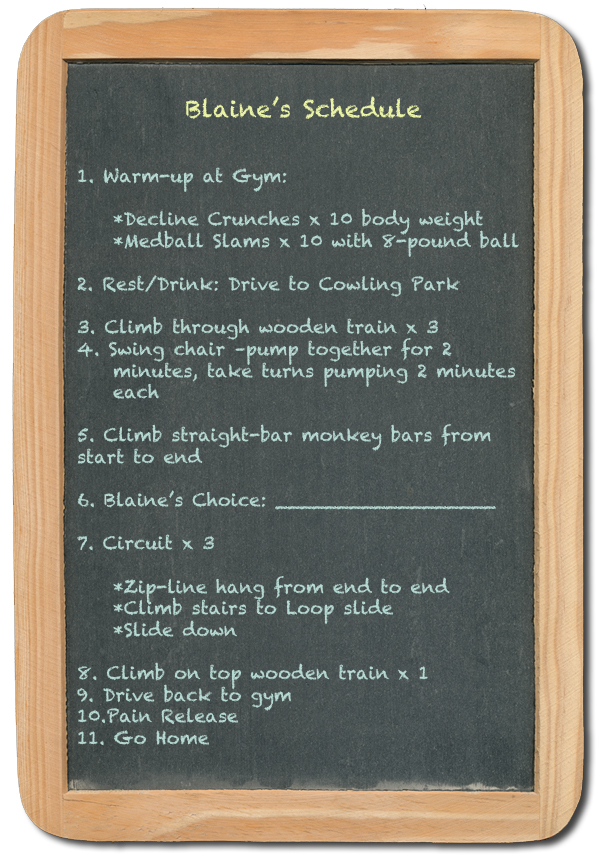 Blaine's Schedule
1. Warm-up at Gym:
*Decline Crunches x 10 body weight
*Medball Slams x 10 with 8-pound ball
2. Rest/Drink: Drive to Cowling Park
3. Climb through wooden train x 3
4. Swing chair -pump together for 2
minutes, take turns pumping 2 minutes
each
5. Climb straight-bar monkey bars from
start to end
6. Blaine's Choice: ____________________
7. Circuit x 3
*Zip-line hang from end to end
*Climb stairs to Loop slide
*Slide down
8. Climb on top wooden train x 1
9. Drive back to gym
10.Pain Release
11. Go Home